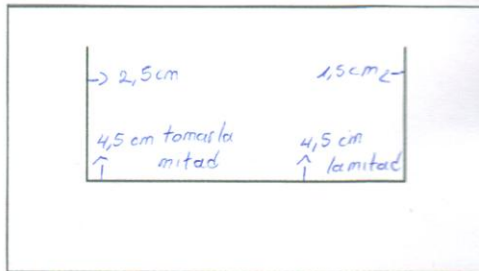 -> 2,5 cm
1,5 cm
4,5 cm tomar la
mitad
4,5 cm
la mitad